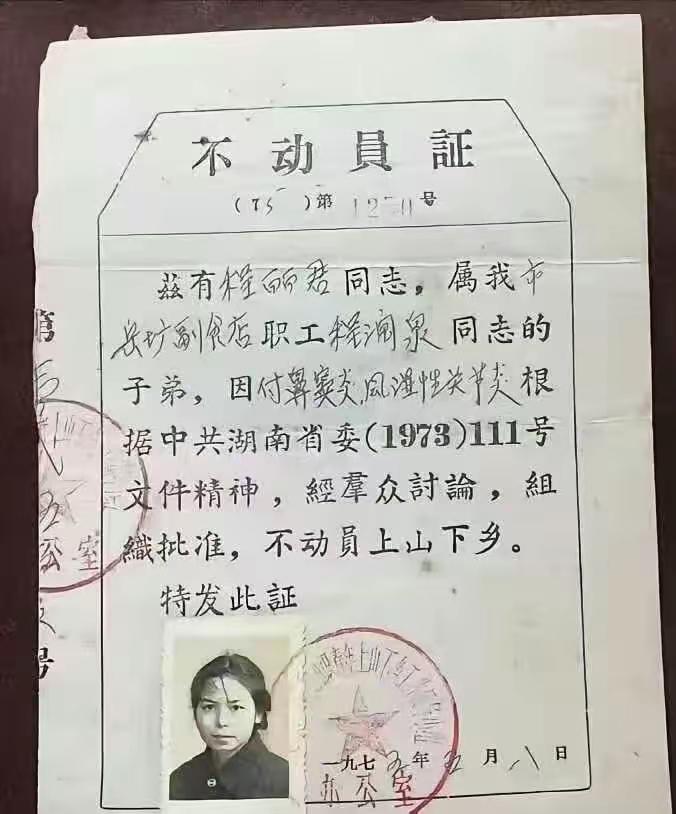 不动員証
(75)第1270号
茲有程丽君同志，属我市
长圹副食店职工程润泉同志的
子弟，因付鼻窦炎,风湿性关节炎根
据中共湖南省委(1973)111号
文件精神，經羣众討論，組
織批准，不动員上山下乡。
特发此証
一九七五年五月八日
办公室
第
五
公室
号